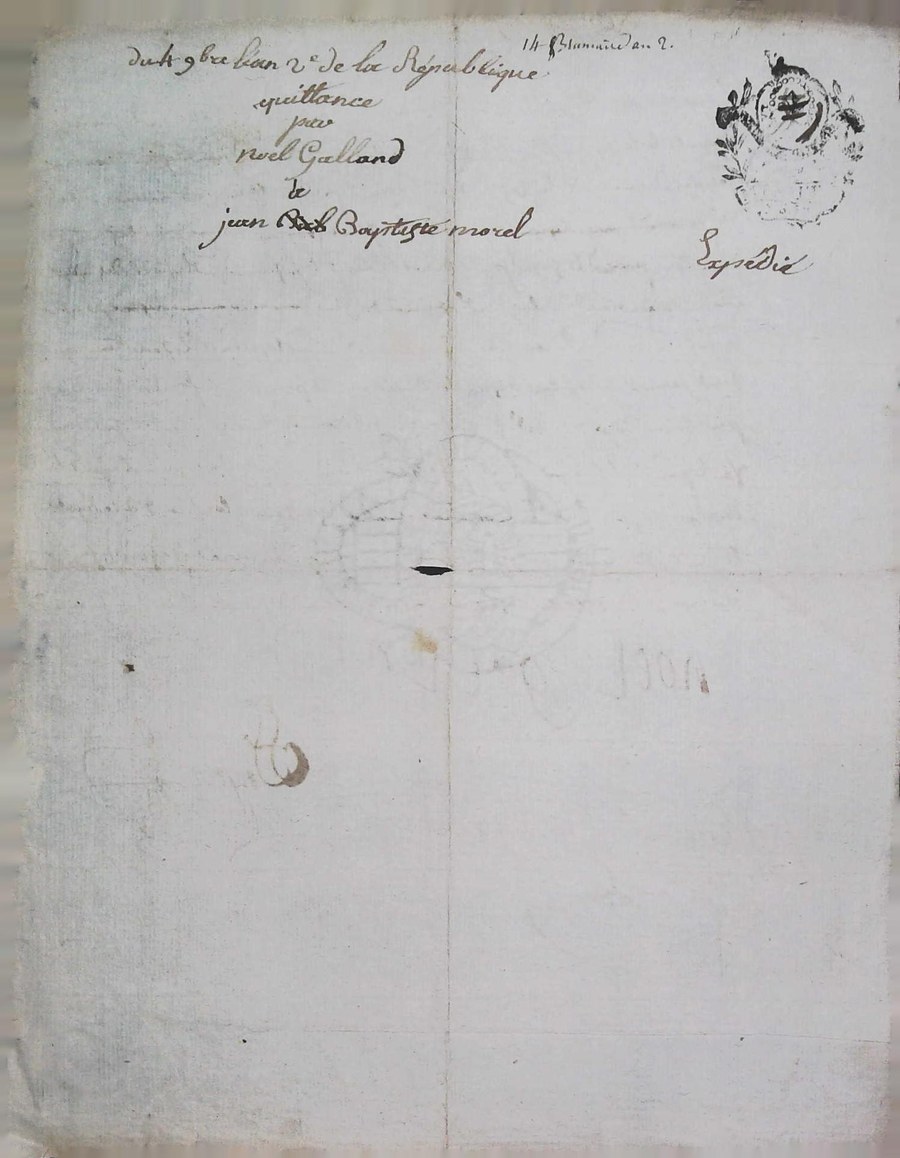 14 Brumaire an 2.
du 4 9bre l'an 2e de la République
quittance
par
noel Galland
a
jean Baptiste morel
Expédié